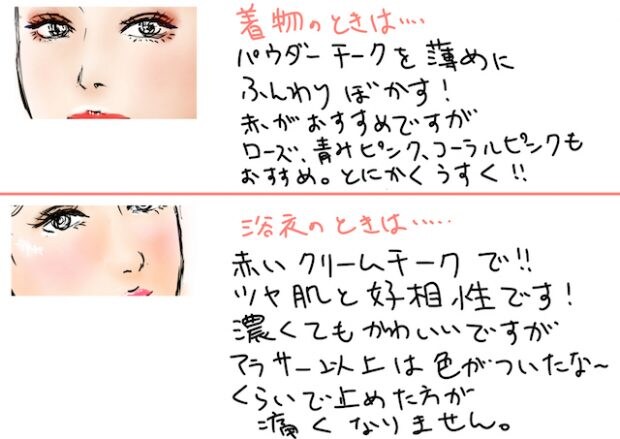 着物のときは‥‥
パウダーチークを薄めに
ふんわりぼかす!
赤がおすすめですが
ローズ、青みピンク、コーラルピンクも
おすすめ。とにかくうすく!!
浴衣のときは‥‥‥
赤いクリームチークで!!
ツヤ肌と好相性です!
濃くてもかわいいですが
アラサー以上は色がついたな〜
くらいで止めた方が
痛くなりません。